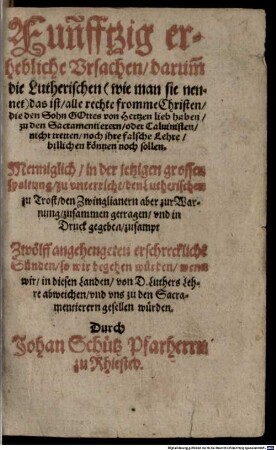 Fuñfftzig er-
hebliche Vrsachen/darumm
die Lutherischen (wie man sie nen-
net) das ist/alle rechte fromme Christen/
die den Sohn GOttes von Hertzen lieb haben/
zu den Sacramentierern/oder Caluinisten/
nicht tretten/noch ihre falsche Lehre/
billichen können noch sollen.
Menniglich/in der jetzigen grossen
spaltung/zu vnterricht/den Lutherischen
zu Trost/den Zwinglianern aber zur War-
nung/zusammen getragen/vnd in
Druck gegeben/zusampt
Zwölff angehengeten erschreckliche
Sünden/so wir begehen würden/wenn
wir/in diesen Landen/von D. Luthers Leh-
re abweichen/vnd vns zu den Sacra-
mentierern gesellen würden.
Durch
Johan Schütz Pfarherrn
zu Rhiested.